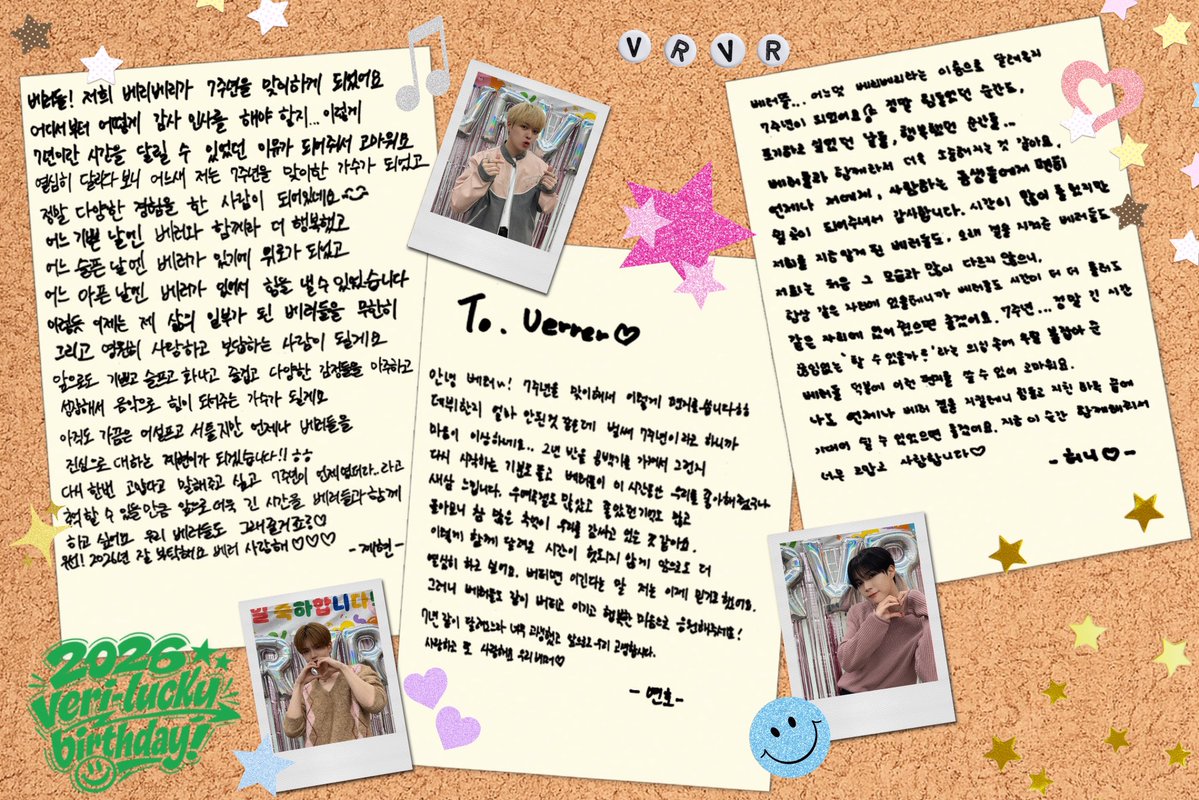 V R V R
베러들! 저희 베리베리가 7주년을 맞이하게 되었어요
어디서부터 어떻게 감사 인사를 해야 할지... 이렇게
7년이란 시간을 달릴 수 있었던 이유가 되어주셔서 고마워요
열심히 달리다 보니 어느새 저는 7주년을 맞이한 가수가 되었고
정말 다양한 경험을 한 사람이 되어있네요
어느 기쁜 날엔 베러와 함께라 더 행복했고
어느 슬픈 날엔 베러가 있기에 위로가 되었고
어느 아픈 날엔 베러가 있어서 힘을 낼 수 있었습니다
이렇듯 이제는 제 삶의 일부가 된 베러들을 무한히
그리고 영원히 사랑하고 보답하는 사람이 될게요
앞으로도 기쁘고 슬프고 화나고 즐겁고 다양한 감정들을 마주하고
성장해서 음악으로 힘이 되어주는 가수가 될게요
아직도 가끔은 어설프고 서툴지만 언제나 베러들을
진심으로 대하는 계현이가 되겠습니다!! ㅎㅎ
다시 한번 고맙다고 말해주고 싶고 7주년이 언제였더라.. 라고
추억할 수 있을 만큼 앞으로 더욱 긴 시간을 베러들과 함께
하고 싶어요 우리 베러들도 그래줄거죠?♡
2026년 잘 부탁해요 베러 사랑해 ♡♡♡
-계현-
To. Verrer♡
안녕 베러들! 7주년을 맞이해서 이렇게 편지를 씁니다ㅎㅎ
데뷔한지 얼마 안된것 같은데 벌써 7주년이라고 하니까
마음이 이상하네요.. 2년 반을 공백기를 가져서 그런지
다시 시작하는 기분도 들고 베러들이 이 시간동안 우리를 좋아해줬구나
새삼 느낍니다. 우여곡절도 많았고 좋았던 기억도 많고
돌아보니 참 많은 추억이 우리를 감싸고 있는 것 같아요.
이렇게 함께 달려온 시간이 헛되지 않게 앞으로도 더
열심히 하고 싶어요. 버티면 이긴다는 말 저는 이제 믿기로 했어요.
그러니 베러들도 같이 버티고 이기고 행복한 마음으로 응원해주세요!
7년 같이 달려오느라 너무 고생했고 앞으로 우리 고생합시다.
사랑하고 또 사랑해요 우리 베러♡
-연호-
베러들... 어느덧 베리베리라는 이름으로 달려온지
7주년이 되었어요 정말 힘들었던 순간도,
포기하고 싶었던 날들, 행복했던 순간들...
베러들과 함께라서 더욱 소중해지는 것 같아요.
언제나 저에게, 사랑하는 동생들에게 편히
쉴 곳이 되어주셔서 감사합니다. 시간이 많이 흘렀지만
저희를 지금 알게 된 베러들도, 오래 곁을 지켜준 베러들도
저희는 처음 그 모습과 많이 다르지 않으니,
항상 같은 자리에 있을테니까 베러들도 시간이 더 더 흘러도
같은 자리에 있어 줬으면 좋겠어요. 7주년... 정말 긴 시간
끊임없는 '할 수 있을까?' 라는 의심 속에
베러들 덕분에 이런 편지를 쓸 수 있어 고마워요.
나도 언제나 베러 곁을 지킬테니 힘들고 지친 하루 끝에
기대어 쉴 수 있었으면 좋겠어요. 지금 이 순간 함께해줘서
너무 고맙고 사랑합니다♡
-허니♡-
일 축하합니다!
2026
veri-lucky
birthday!